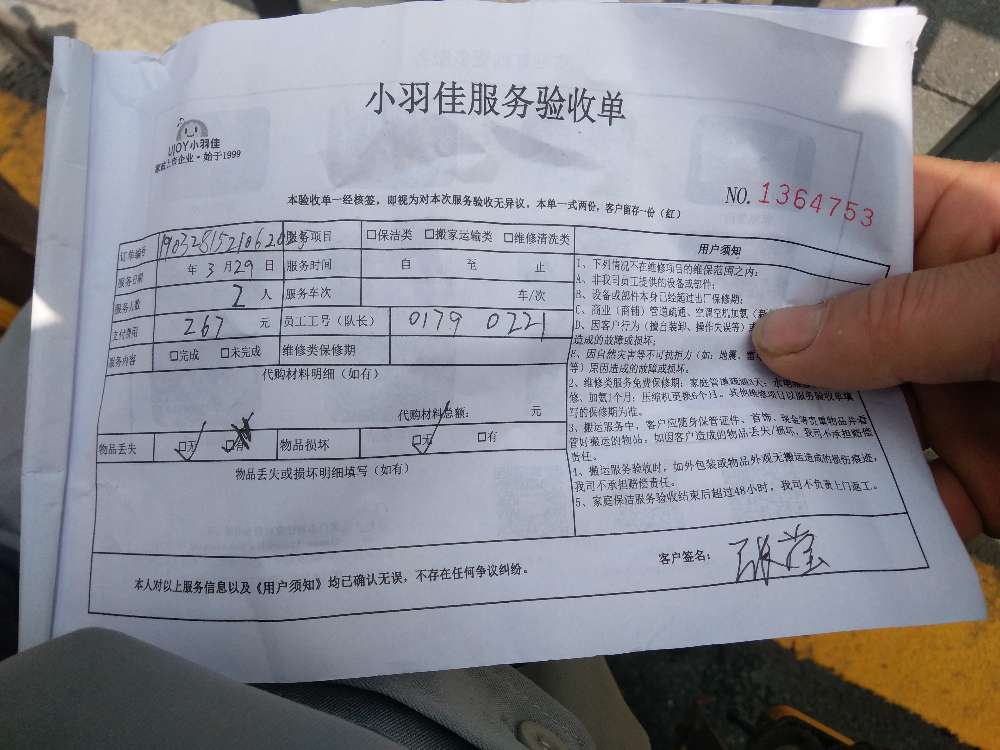 小羽佳服务验收单
UJOY小羽佳
家政上市企业·始于1999
NO. 1364753
本验收单一经核签，即视为对本次服务验收无异议，本单一式两份，客户留存一份（红）
订单编号 服务项目 □保洁类 □搬家运输类 □维修清洗类
服务日期 年 3 月 29 日 服务时间 自 至 止
服务人数 2 人 服务车次 车/次
支付费用 267 元 员工工号（队长） 0179 0221
服务内容 □完成 □未完成 维修类保修期
代购材料明细（如有）
代购材料总额： 元
物品丢失 □无 □有 物品损坏 □无 □有
物品丢失或损坏明细填写（如有）
用户须知
1、下列情况不在维修项目的维保范围之内：
A、非我司员工提供的设备或部件；
B、设备或部件本身已经超过出厂保修期；
C、商业（商铺）管道疏通、空调空机加氨
D、因客户行为（擅自装卸、操作失误等）
造成的故障或损坏；
E、因自然灾害等不可抗拒力（如：地震、
等）原因造成的故障或损坏。
2、维修类服务免费保修期：家庭管道疏通3天；水电
修、加氨1个月；压缩机更换6个月。其他维修项目以服务验收单填
写的保修期为准。
3、搬运服务中，客户应随身保管证件、首饰、现金等贵重物品并看
管好搬运的物品，如因客户造成的物品丢失/损坏，我司不承担赔偿
责任。
4、搬运服务验收时，如外包装或物品外观无搬运造成的损伤痕迹，
我司不承担赔偿责任。
5、家庭保洁服务验收结束后超过48小时，我司不负责上门返工。
本人对以上服务信息以及《用户须知》均已确认无误，不存在任何争议纠纷。
客户签名：